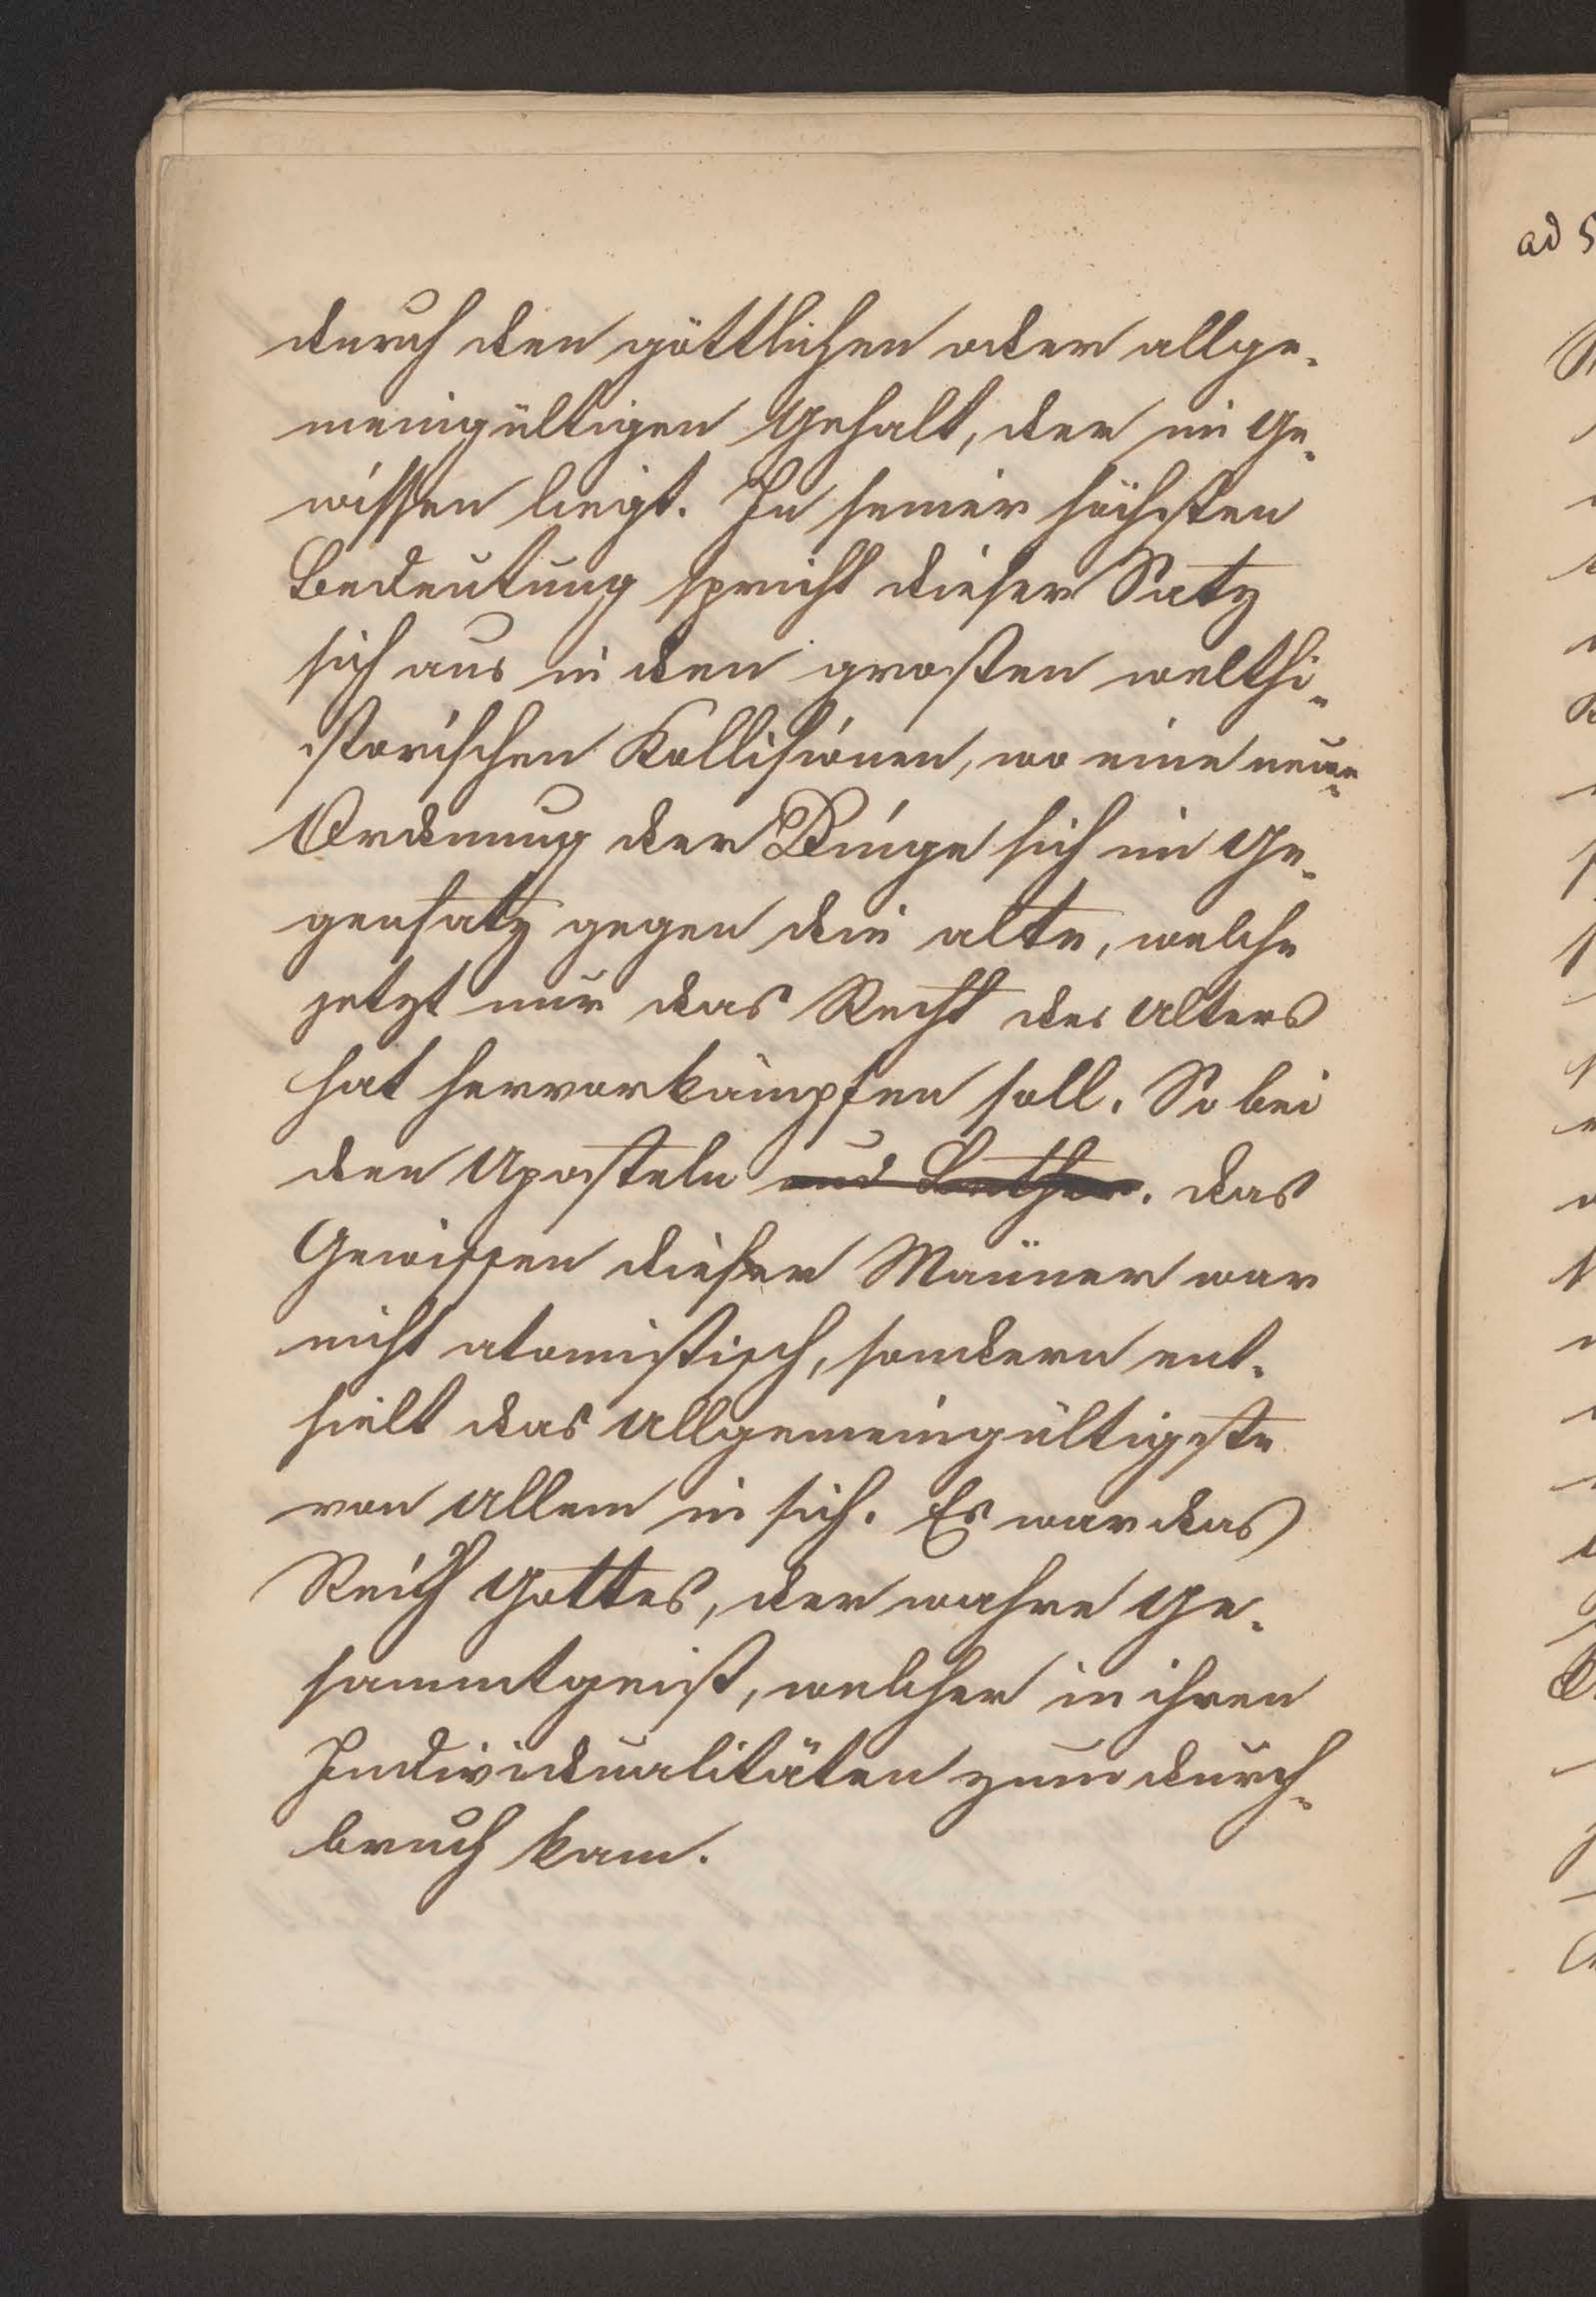 durch den göttlichen oder allge-
meingültigen Gehalt, der im Ge-
wissen liegt. In seiner höchsten
Bedeutung spricht dieser Satz
sich aus in den großen welthi-
storischen Kollisionen, wo eine neue
Ordnung der Dinge sich im Ge-
gensatz gegen die alte, welche
jetzt nur das Recht des Alters
hat hervorkämpfen soll. So bei
den Aposteln und Luther. das
Gewissen dieser Männer war
nicht atomistisch, sondern ent-
hielt das Allgemeingültigste
von Allem in sich. Es war das
Reich Gottes, der wahre Ge-
sammtgeist, welcher in ihren
Individualitäten zum durch-
bruch kam.
ad 5